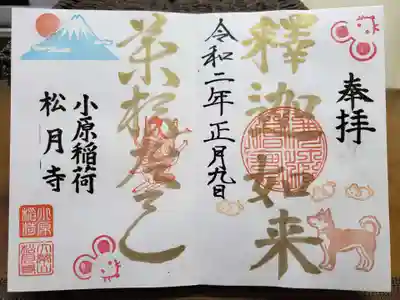 奉拝
釋迦如来
令和二年正月九日
荼枳尼天
小原稲荷
松月寺